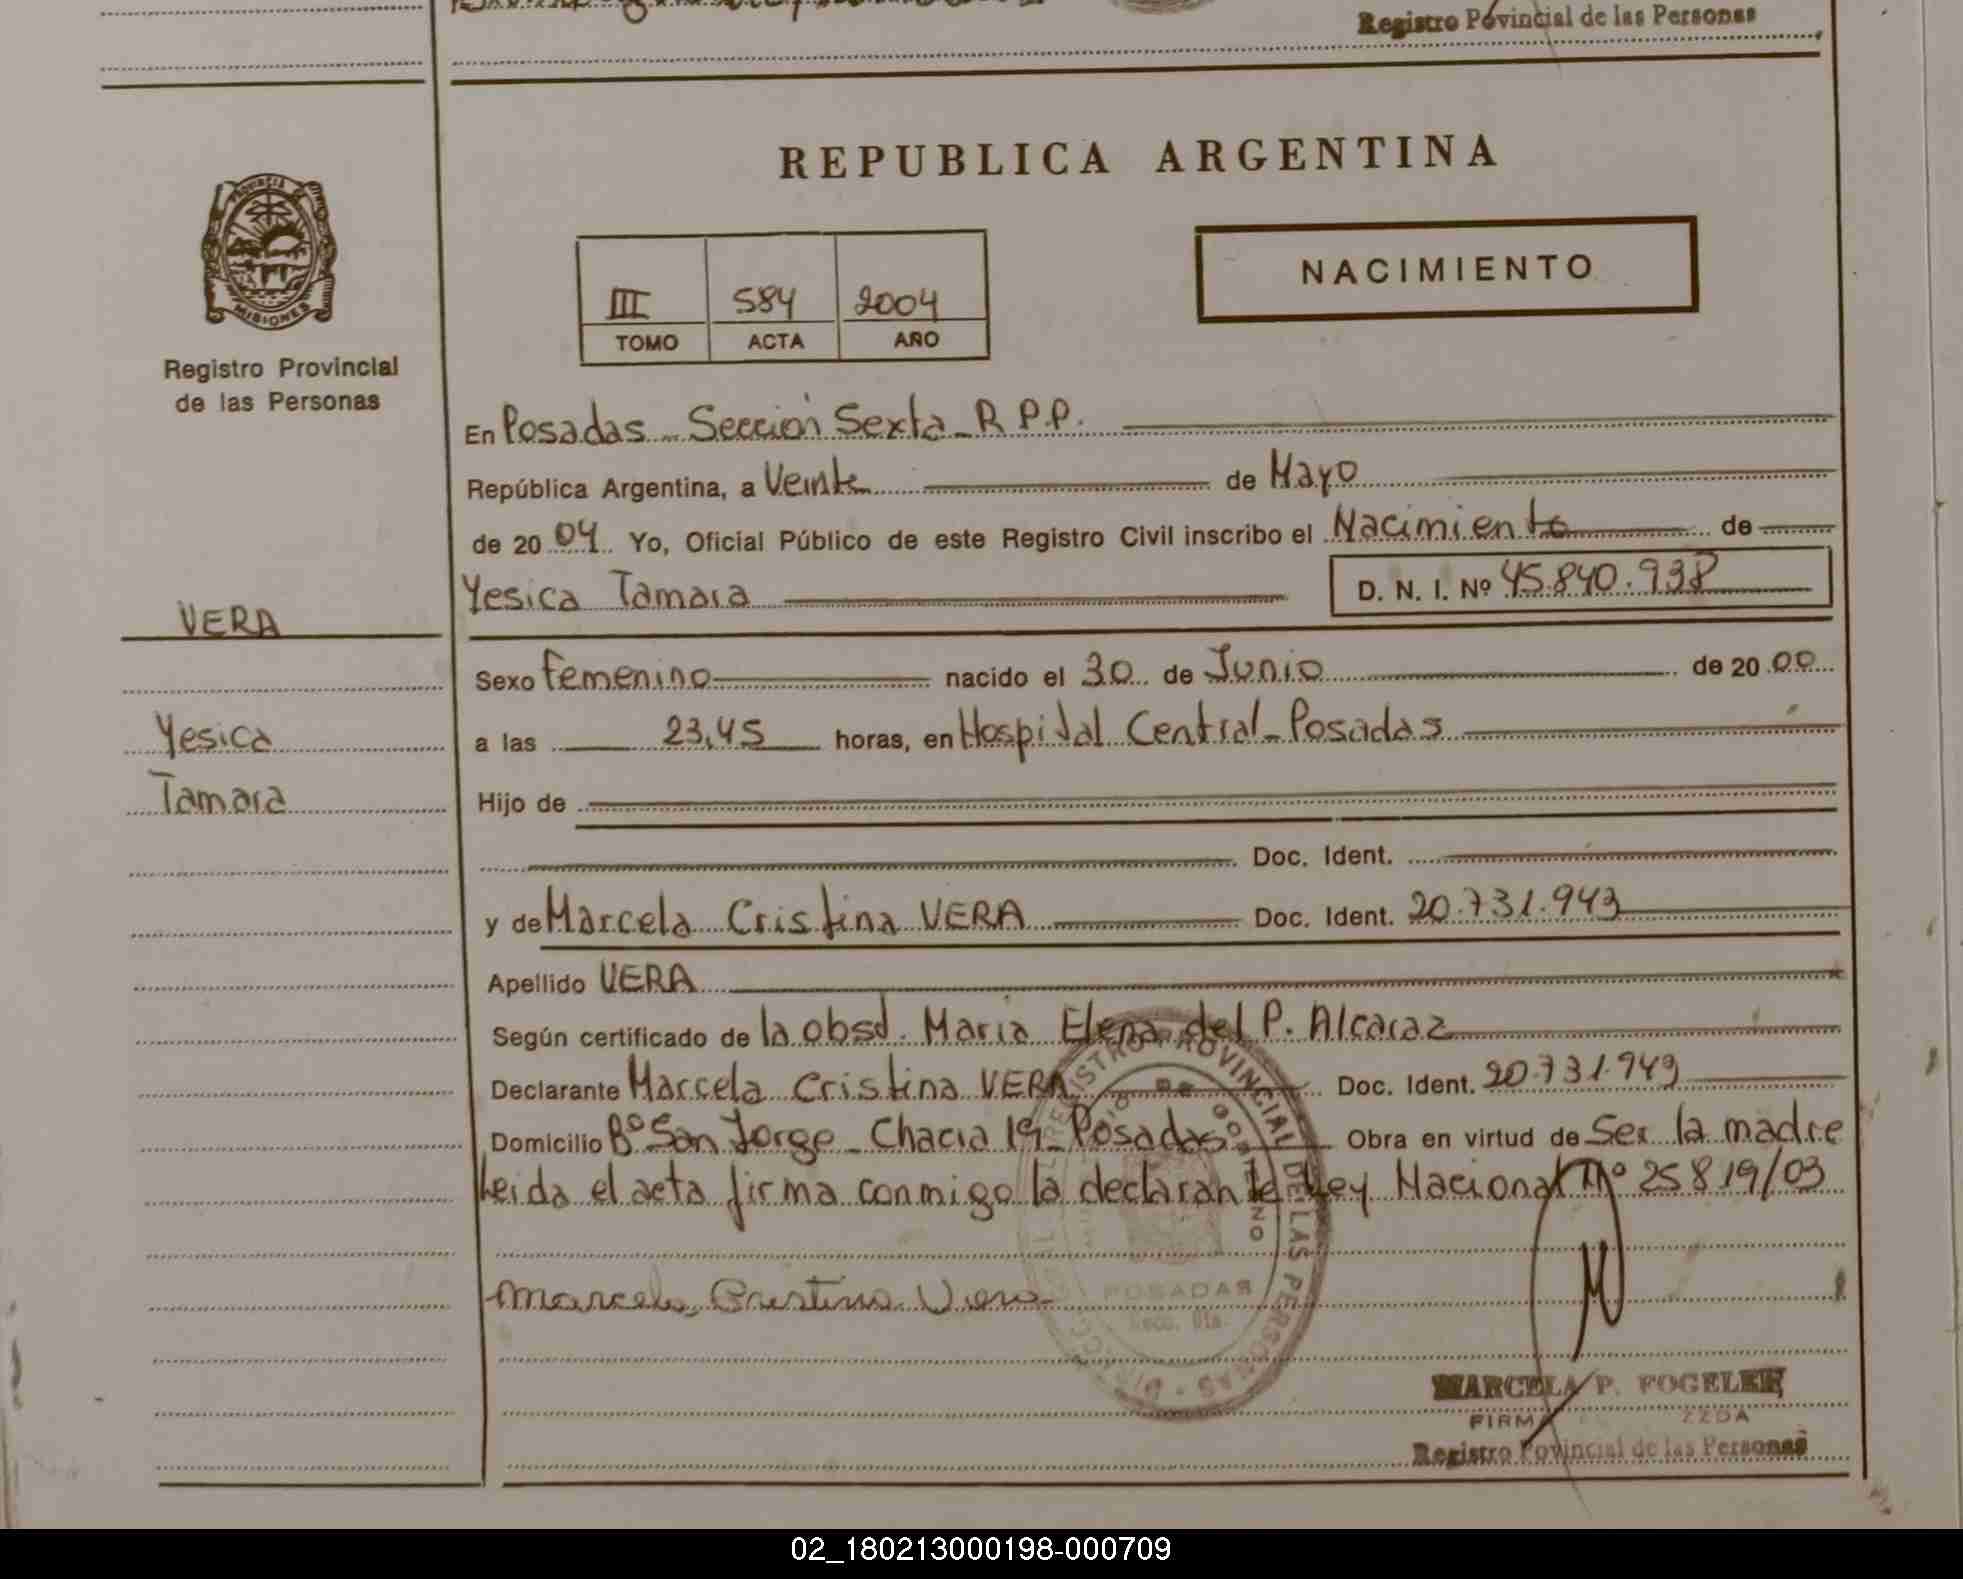 Registro Povincial de las Personas
REPUBLICA ARGENTINA
PROVINCIA DE
MISIONES
Registro Provincial
de las Personas
III 584 2004
TOMO ACTA AÑO
NACIMIENTO
En Posadas - Sección Sexta - R.P.P.
República Argentina, a Veinte de Mayo
de 2004 Yo, Oficial Público de este Registro Civil inscribo el Nacimiento de
Yesica Tamara D. N. I. Nº 45.840.938
VERA
Yesica
Tamara
Sexo Femenino nacido el 30 de Junio de 2000
a las 23,45 horas, en Hospital Central - Posadas
Hijo de
Doc. Ident.
y de Marcela Cristina VERA Doc. Ident. 20.731.943
Apellido VERA
Según certificado de la obst. Maria Elena del P. Alcaraz
Declarante Marcela Cristina VERA Doc. Ident. 20.731.943
Domicilio Bº San Jorge - Chacra 19 - Posadas Obra en virtud de Ser la madre
Leida el acta firma conmigo la declarante Ley Nacional Nº 25819/03
Marcela Cristina Vera
REGISTRO PROVINCIAL DE LAS PERSONAS
GOBIERNO
POSADAS
MARCELA P. FOGELER
FIRMA
Registro Povincial de las Personas
02_180213000198-000709